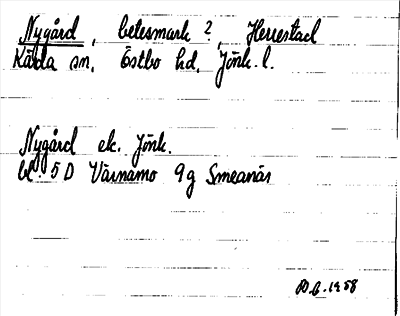 Nygård, betesmark ?, Herrestad
Kärda sn, Östbo hd, Jönk. l.
Nygård ek. Jönk.
bl 5 D Värnamo 9 g Smeanäs
1958